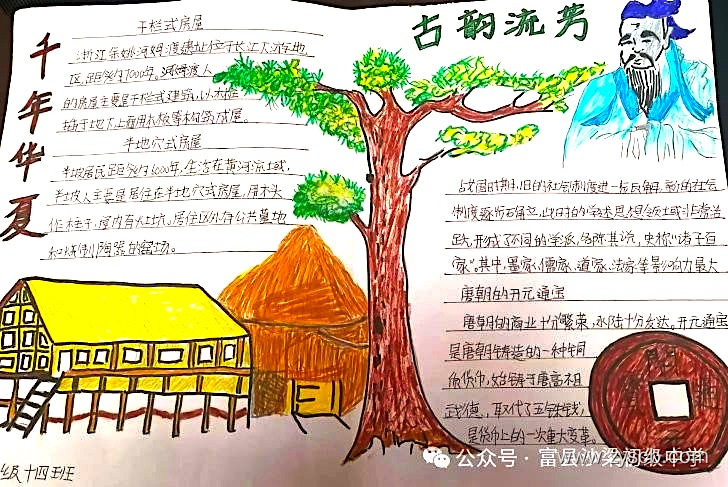 千年华夏
干栏式房屋
浙江余姚河姆渡遗址位于长江下游地
区,距今约7000年。河姆渡人
的房屋主要是干栏式建筑,以木桩
半地穴式房屋
半坡居民距今约6000年,生活在黄河流域,
半坡人主要是居住在半地穴式房屋,用木头
作柱子,屋内有火坑,居住区外有公共墓地
和烧制陶器的窑场。
古韵流芳
战国时期,旧的社会制度进一步瓦解,新的社会
制度逐步确立,此时的学术思想领域非常活
跃,形成了不同的学派,各陈其说,史称“诸子百
家”。其中,墨家、儒家、道家、法家等影响力最大
唐朝的开元通宝
唐朝的商业十分繁荣,水陆十分发达。开元通宝
是唐朝铸造的一种铜
质货币,始铸于唐高祖
武德,取代了五铢钱,
是货币上的一次重大变革。
级十四班
公众号·富县沙梁初级中学